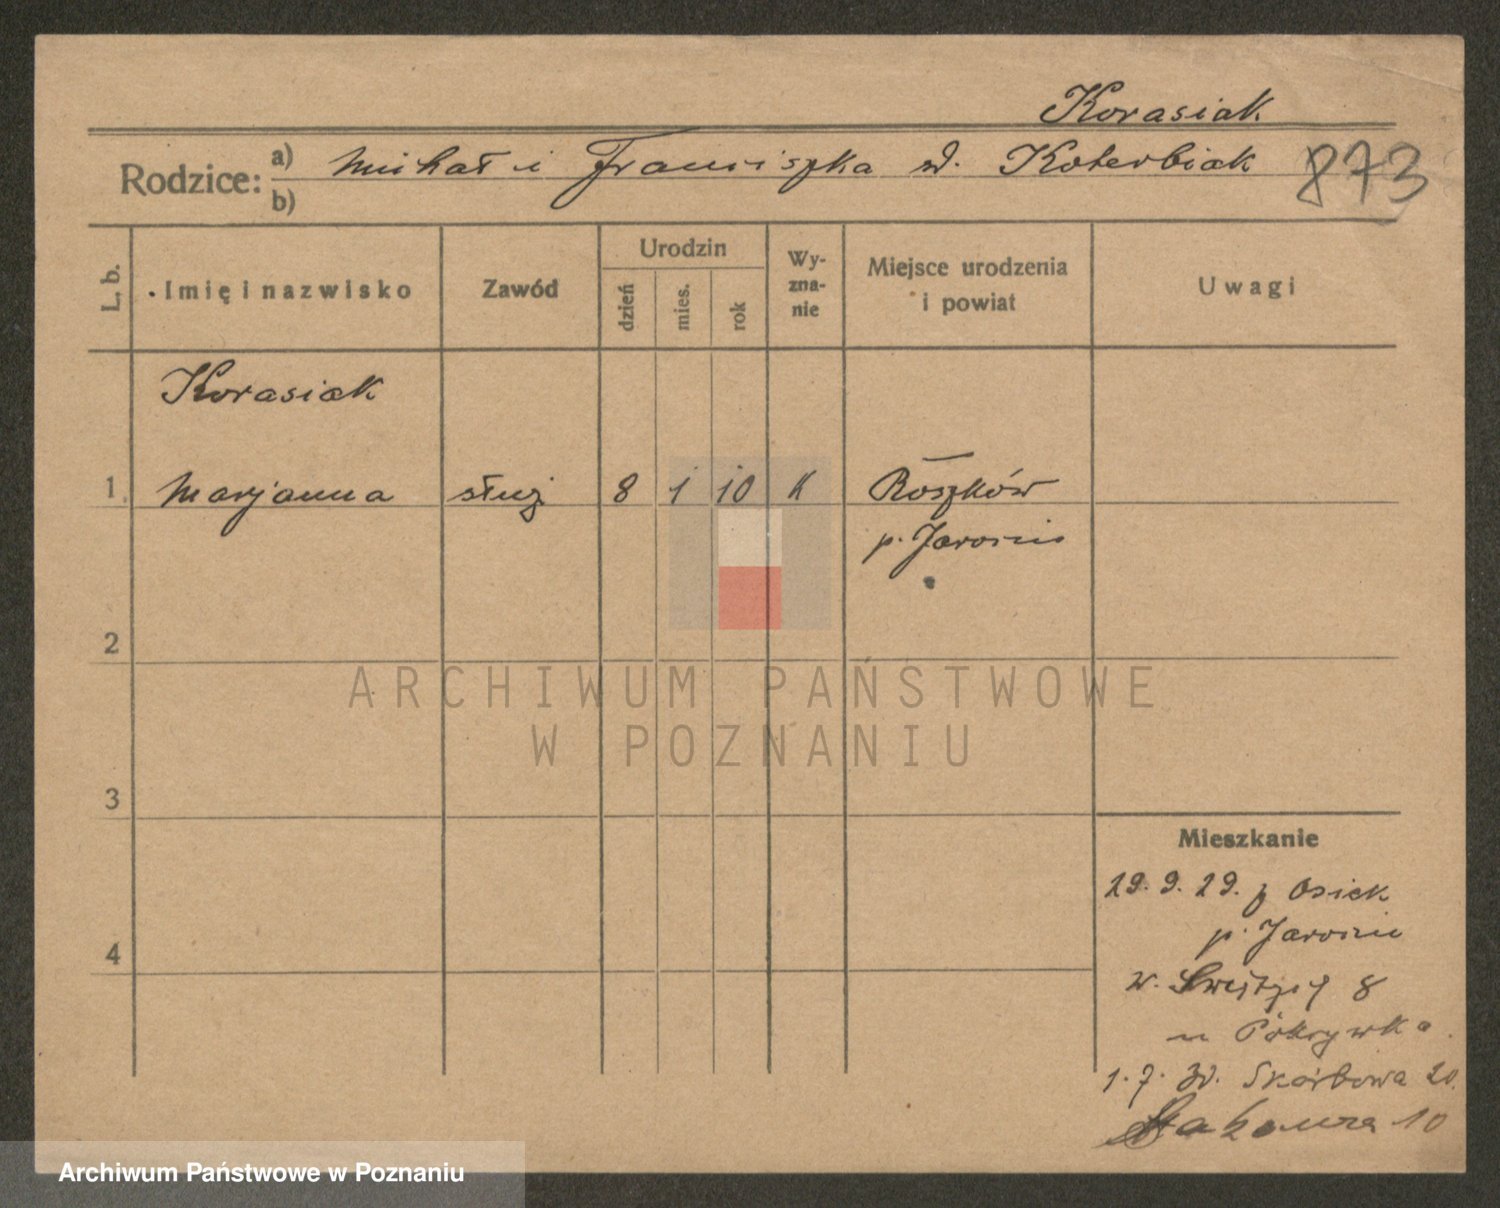 Korasiak
Rodzice: a) Michał i Franciszka d. Koterbiak 873
b)
L. b. Imię i nazwisko Zawód Urodzin dzień mies. rok Wyznanie Miejsce urodzenia i powiat Uwagi
Korasiak
1 Marjanna służ 8 1 10 K Roszków
p. Jarocin
2
ARCHIWUM PAŃSTWOWE
W POZNANIU
3
Mieszkanie
29. 9. 29. z Osiek
p. Jarocin
4
w. 8
u Pokrywka
1. 7. 30. Skarbowa 20.
10
Archiwum Państwowe w Poznaniu